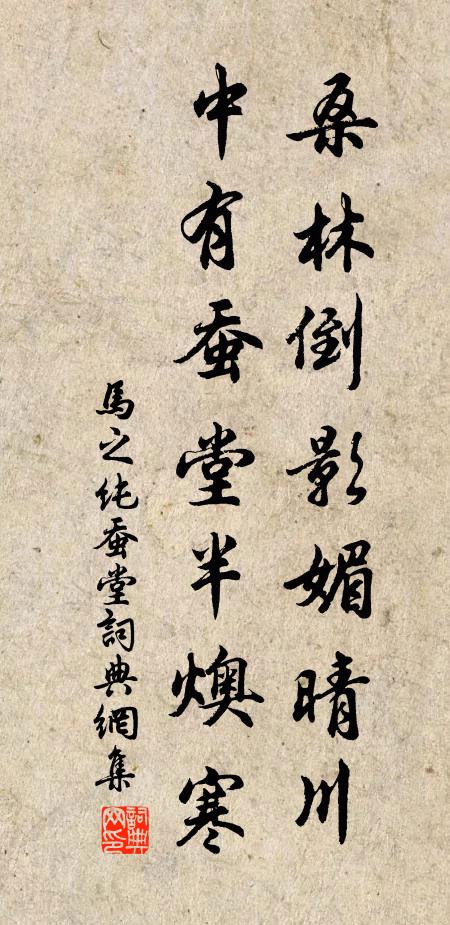 桑林倒影媚晴川
中有蚕堂半燠寒
馬之纯蚕堂詞典網集
詞典
网印